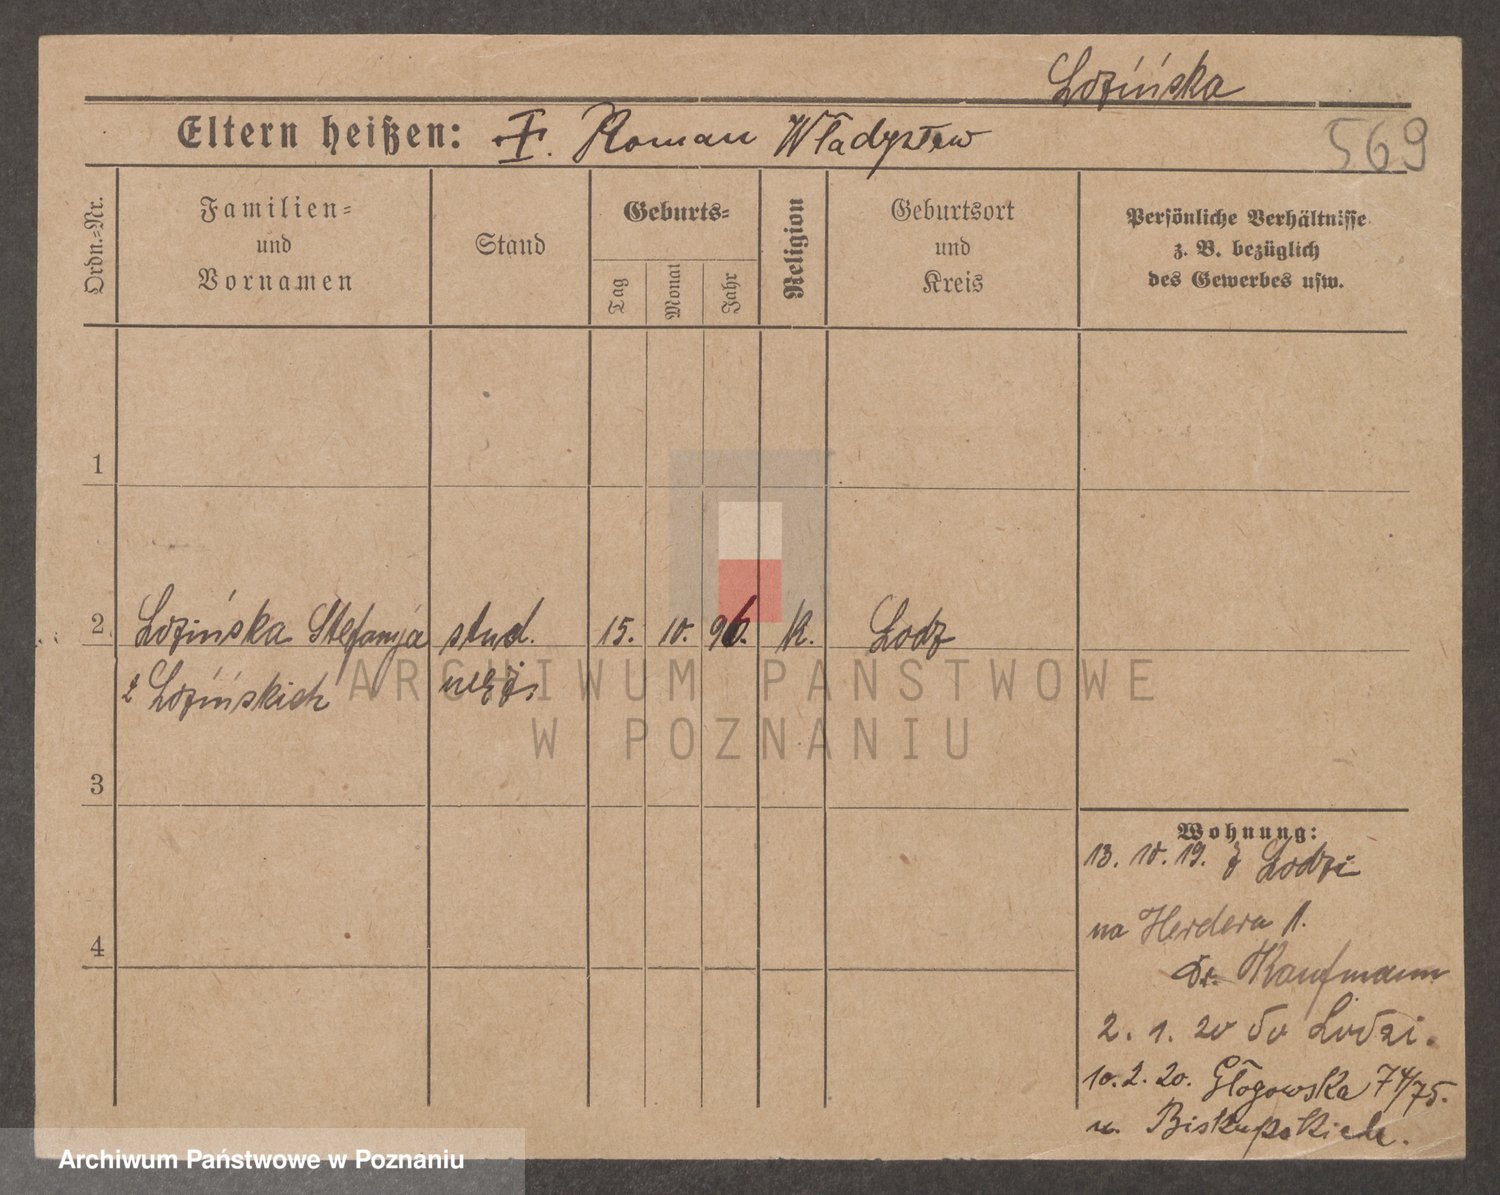 Łozińska
Eltern heißen: F. Roman Władysław
569
Ordn.-Nr.
Familien-
und
Vornamen
Stand
Geburts-
Tag
Monat
Jahr
Religion
Geburtsort
und
Kreis
Persönliche Verhältnisse
z. B. bezüglich
des Gewerbes usw.
1
2 Łozińska Stefanja stud. 15. 10. 96. k. Lodz
z Łozińskich
3
4
Wohnung:
13. 10. 19. z Lodzi
na Herdera 1.
Dr. Kaufmann
2. 1. 20 do Lodzi.
10. 2. 20. Głogowska 74/75.
u. Biskupskich.
ARCHIWUM PAŃSTWOWE
W POZNANIU
Archiwum Państwowe w Poznaniu